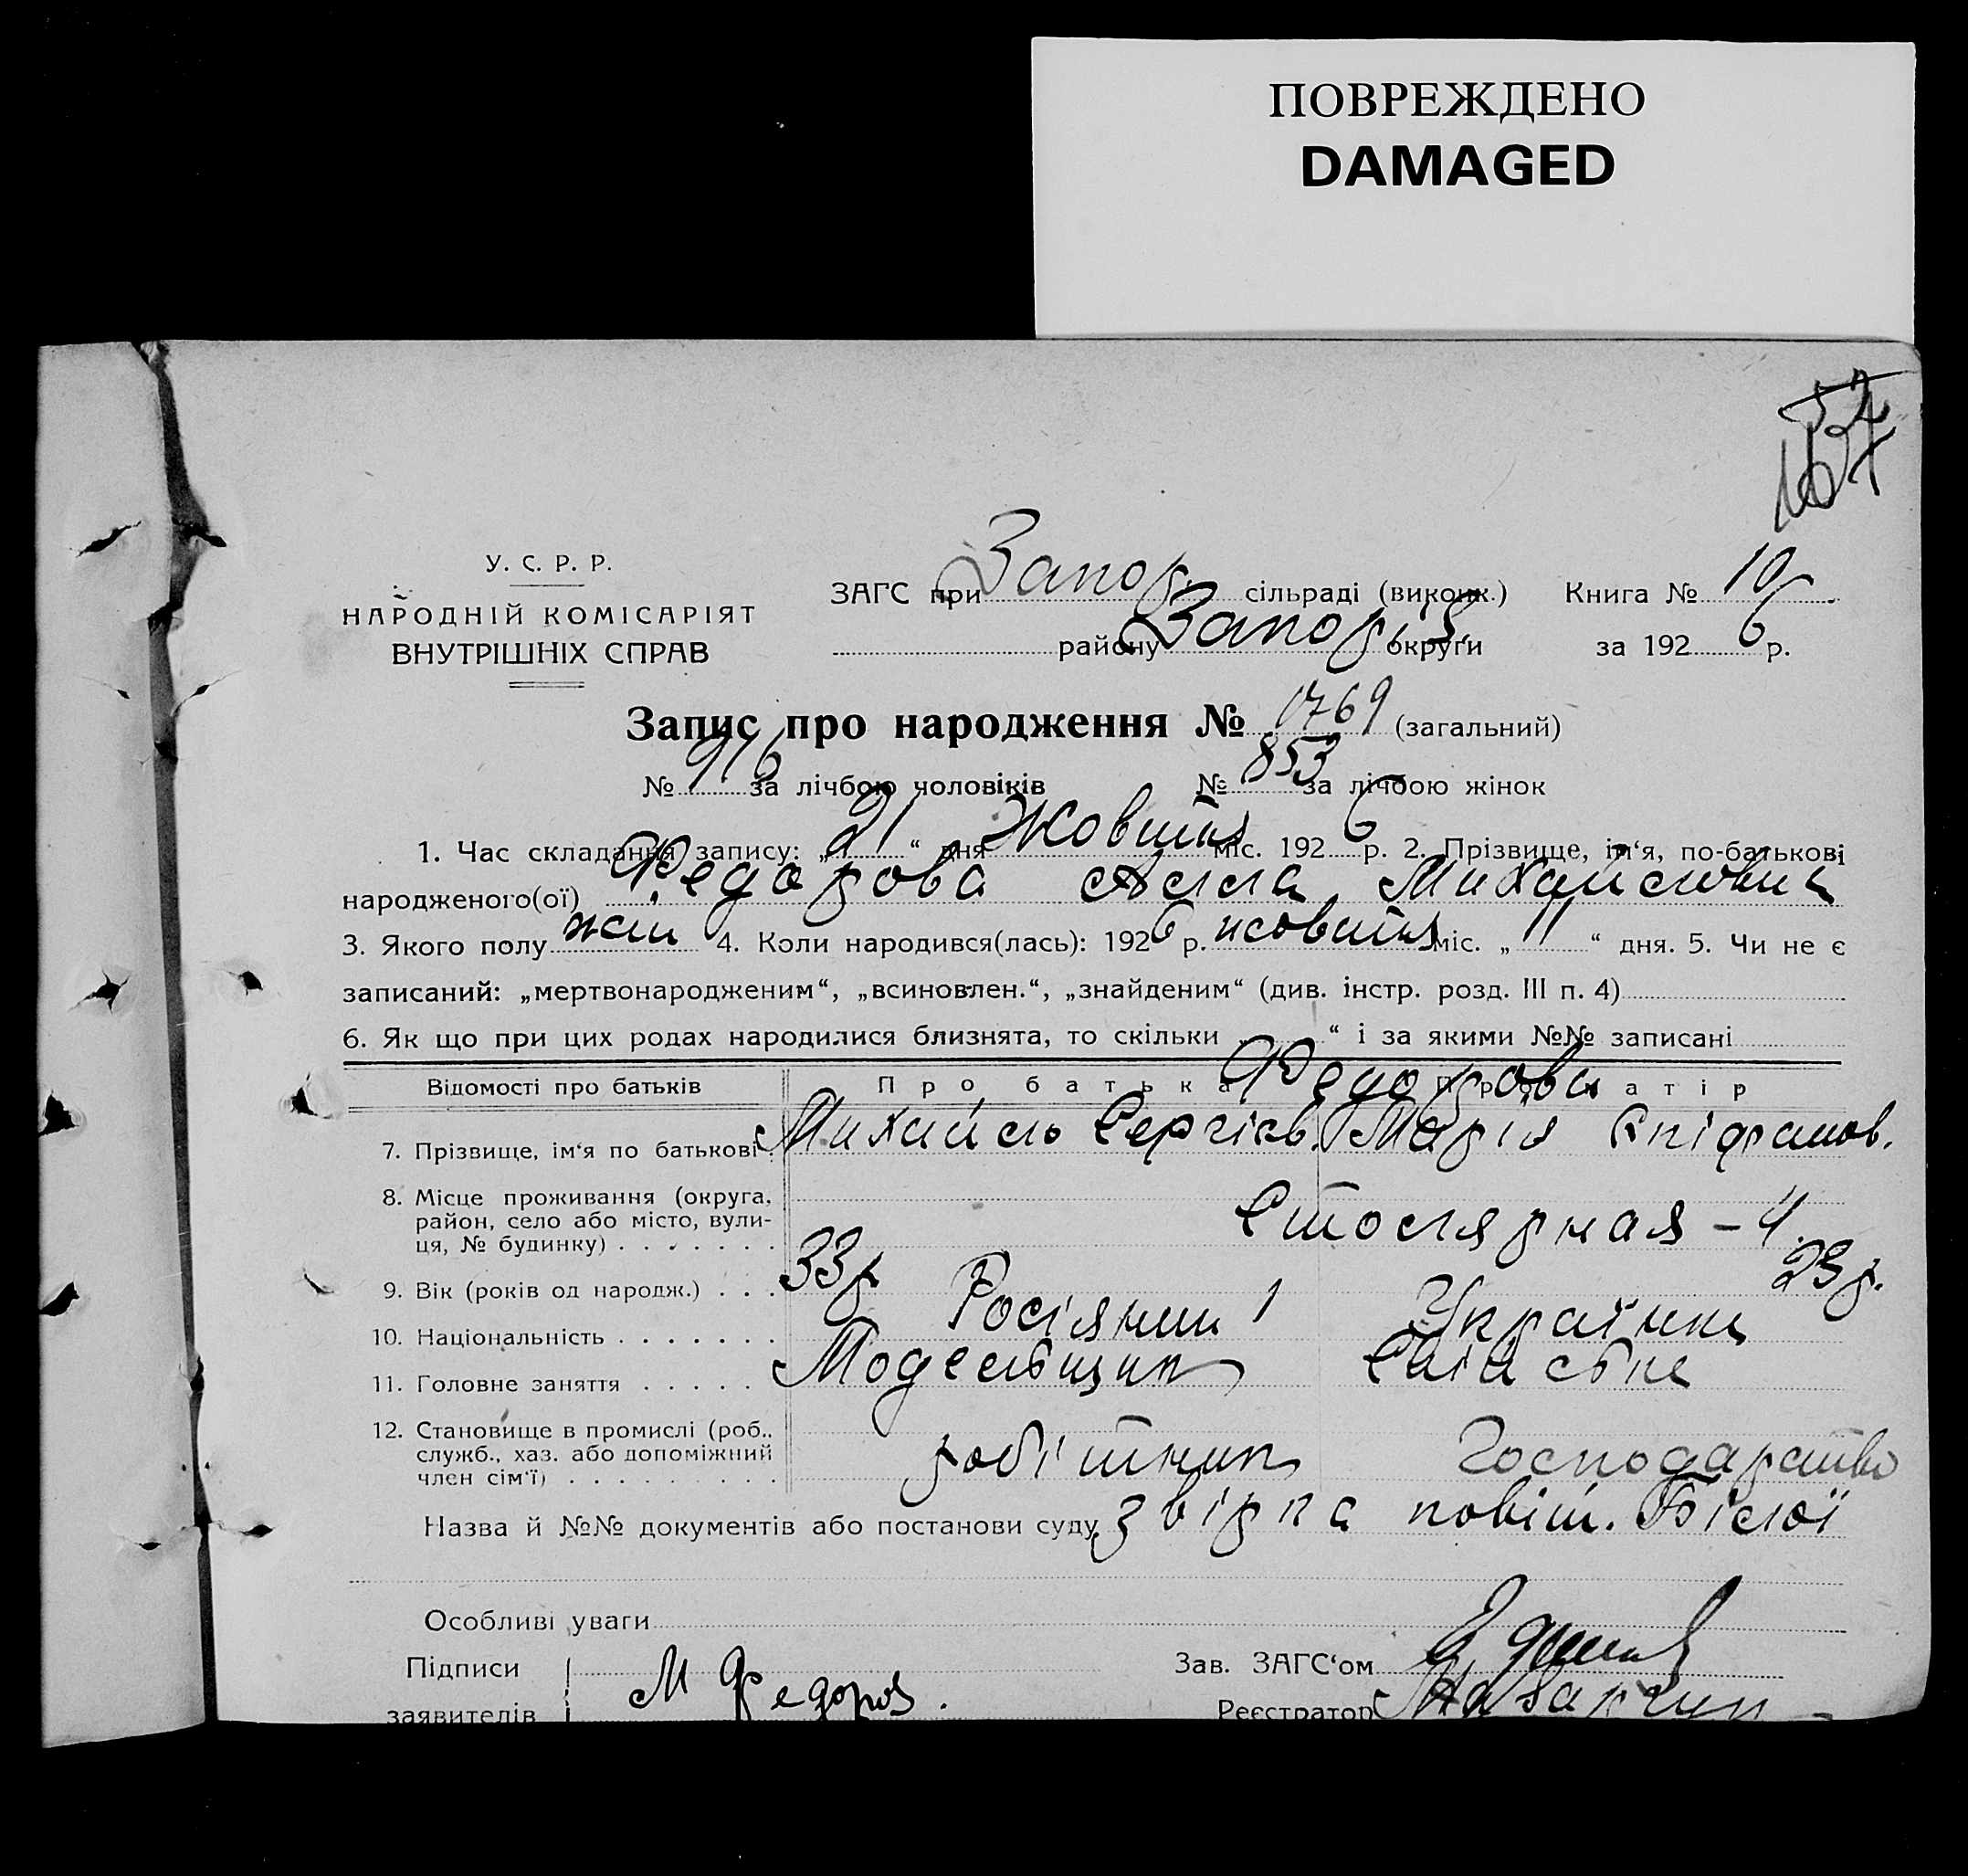 ПОВРЕЖДЕНО
DAMAGED
У. С. Р. Р.
НАРОДНІЙ КОМІСАРІЯТ
ВНУТРІШНІХ СПРАВ
ЗАГС при Запор. сільраді (виконк.) Книга № 10
району Запоріз. округи за 1926 р.
Запис про народження № 1769 (загальний)
№ 916 за лічбою чоловіків № 853 за лічбою жінок
1. Час складання запису: „21“ дня Жовтня міс. 1926 р. 2. Прізвище, ім‘я, по-батькові
народженого(ої) Федорова Алла Михайловна
3. Якого полу жін 4. Коли народився(лась): 1926 р. жовтня міс. „11“ дня. 5. Чи не є
записаний: „мертвонародженим“, „всиновлен.“, „знайденим“ (див. інстр. розд. III п. 4)
6. Як що при цих родах народилися близнята, то скільки „ “ і за якими №№ записані
Відомості про батьків Про батька Про матір
Федорови
7. Прізвище, ім‘я по батькові Михайло Сергієв. Марія Єпіфанов.
8. Місце проживання (округа, район, село або місто, вули-
ця, № будинку) Столярная – 4.
9. Вік (років од народж.) 33 р. 23 р.
10. Національність Росіянин Українка
11. Головне заняття Модельщик Хатьске
12. Становище в промислі (роб.,
служб., хаз. або допоміжний
член сім‘ї) робітник Господарство
Назва й №№ документів або постанови суду звірка повіт. Білої
Особливі уваги
Підписи
заявителів М Федоров.
Зав. ЗАГС‘ом
Реєстратор